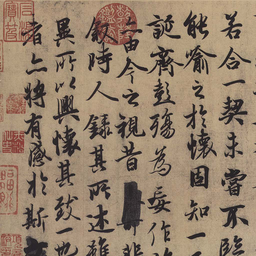 若合一契未嘗不臨
能喻之於懷固知一
誕齊彭殤為妄作
亦由今之視昔悲
叙時人錄其所述雖
異所以興懷其致一也
者亦將有感於斯